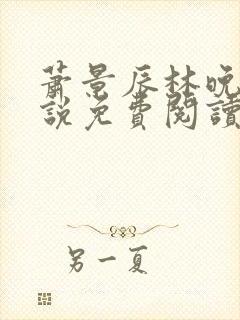 萧景辰林晚
說免費閱讀
另一夏